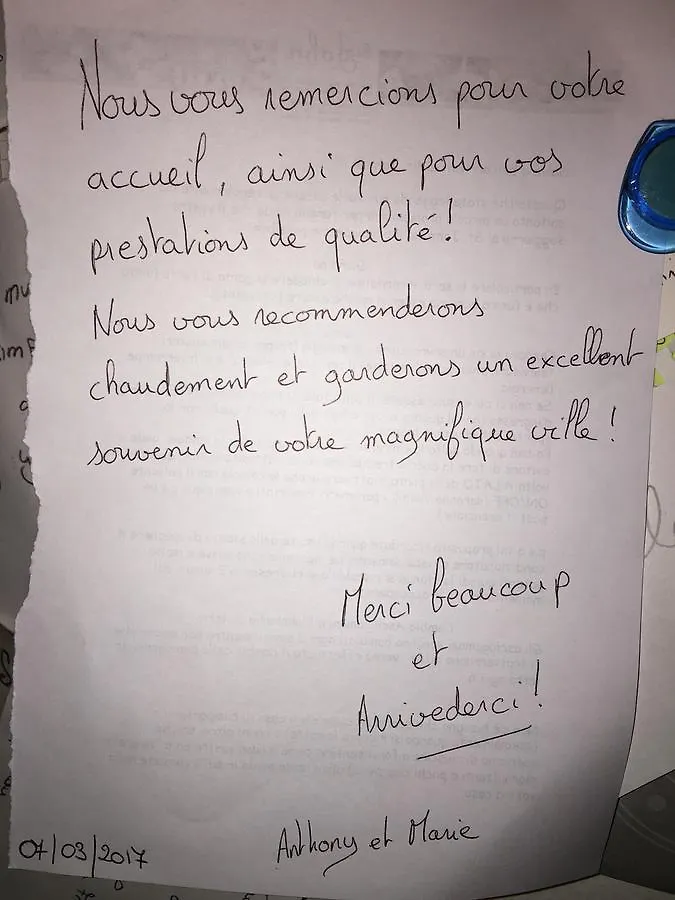 Nous vous remercions pour votre
accueil, ainsi que pour vos
prestations de qualité !
Nous vous recommenderons
chaudement et garderons un excellent
souvenir de votre magnifique ville !
Merci beaucoup
et
Arrivederci !
Anthony et Marie
07/03/2017